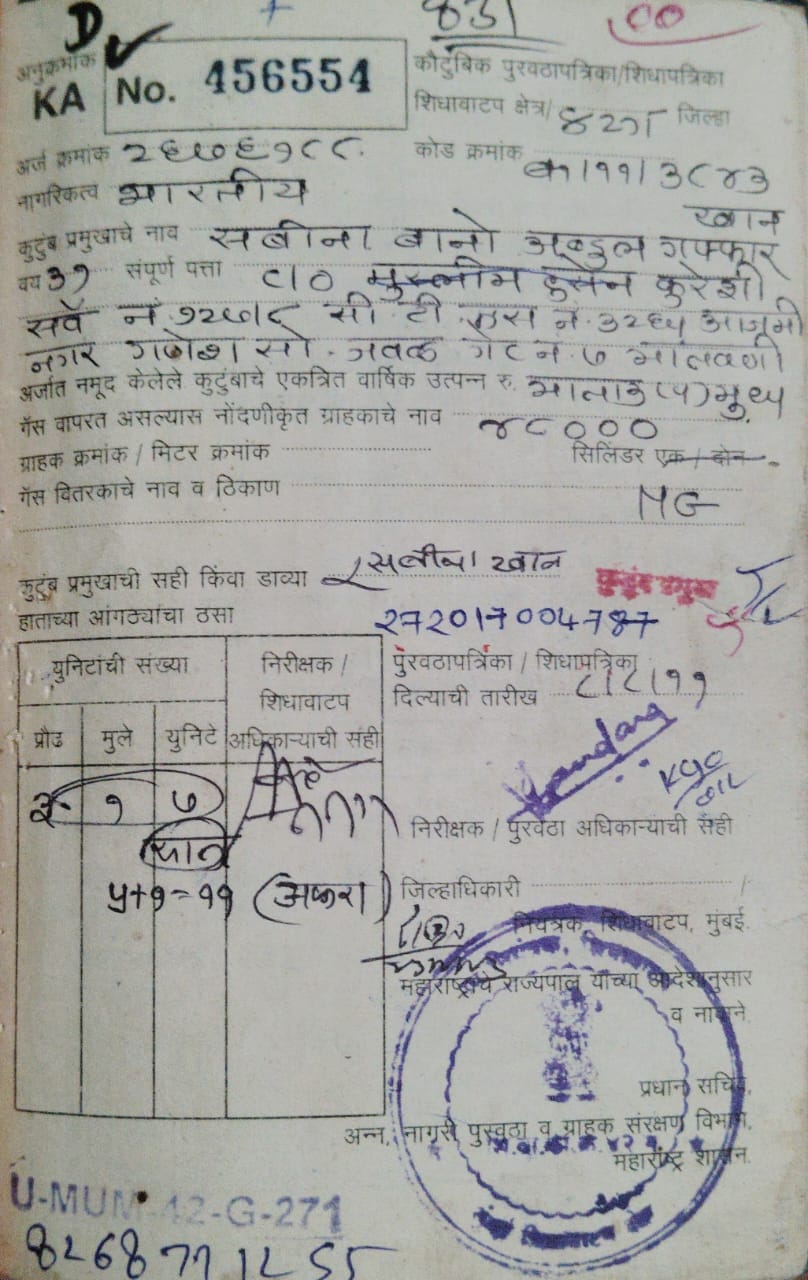 D
अनुक्रमांक
KA No. 456554
कौटुंबिक पुरवठापत्रिका/शिधापत्रिका
शिधावाटप क्षेत्र/ जिल्हा
अर्ज क्रमांक २६७६१८८
कोड क्रमांक
नागरिकत्व भारतीय
खान
कुटुंब प्रमुखाचे नाव सबीना बानो अब्दुल गफ्फार
वय ३१ संपूर्ण पत्ता C/O मुस्लीम हुसेन कुरेशी
सर्वे नं १२७/८ सी टी एस नं ३२६५ आजमी
नगर गणेश सो. जवळ गेट नं ७ मालवणी
अर्जात नमूद केलेले कुटुंबाचे एकत्रित वार्षिक उत्पन्न रु. मालाड (प) मुं
गॅस वापरत असल्यास नोंदणीकृत ग्राहकाचे नाव ४८०००
ग्राहक क्रमांक / मिटर क्रमांक सिलिंडर एक / दोन
गॅस वितरकाचे नाव व ठिकाण NG
कुटुंब प्रमुखाची सही किंवा डाव्या सबीना खान
कुटुंब प्रमुख
हाताच्या आंगठ्यांचा ठसा 272017004787
युनिटांची संख्या
निरीक्षक /
शिधावाटप
अधिकाऱ्याची सही
प्रौढ मुले युनिटे
३ १ ७
सात
५+१=११ (अकरा)
पुरवठापत्रिका / शिधापत्रिका
दिल्याची तारीख ८/८/११
निरीक्षक / पुरवठा अधिकाऱ्याची सही
जिल्हाधिकारी /
नियंत्रक, शिधावाटप, मुंबई.
महाराष्ट्राचे राज्यपाल यांच्या आदेशानुसार
व नावाने
प्रधान सचिव,
अन्न, नागरी पुरवठा व ग्राहक संरक्षण विभाग,
महाराष्ट्र शासन
U-MUM-42-G-271